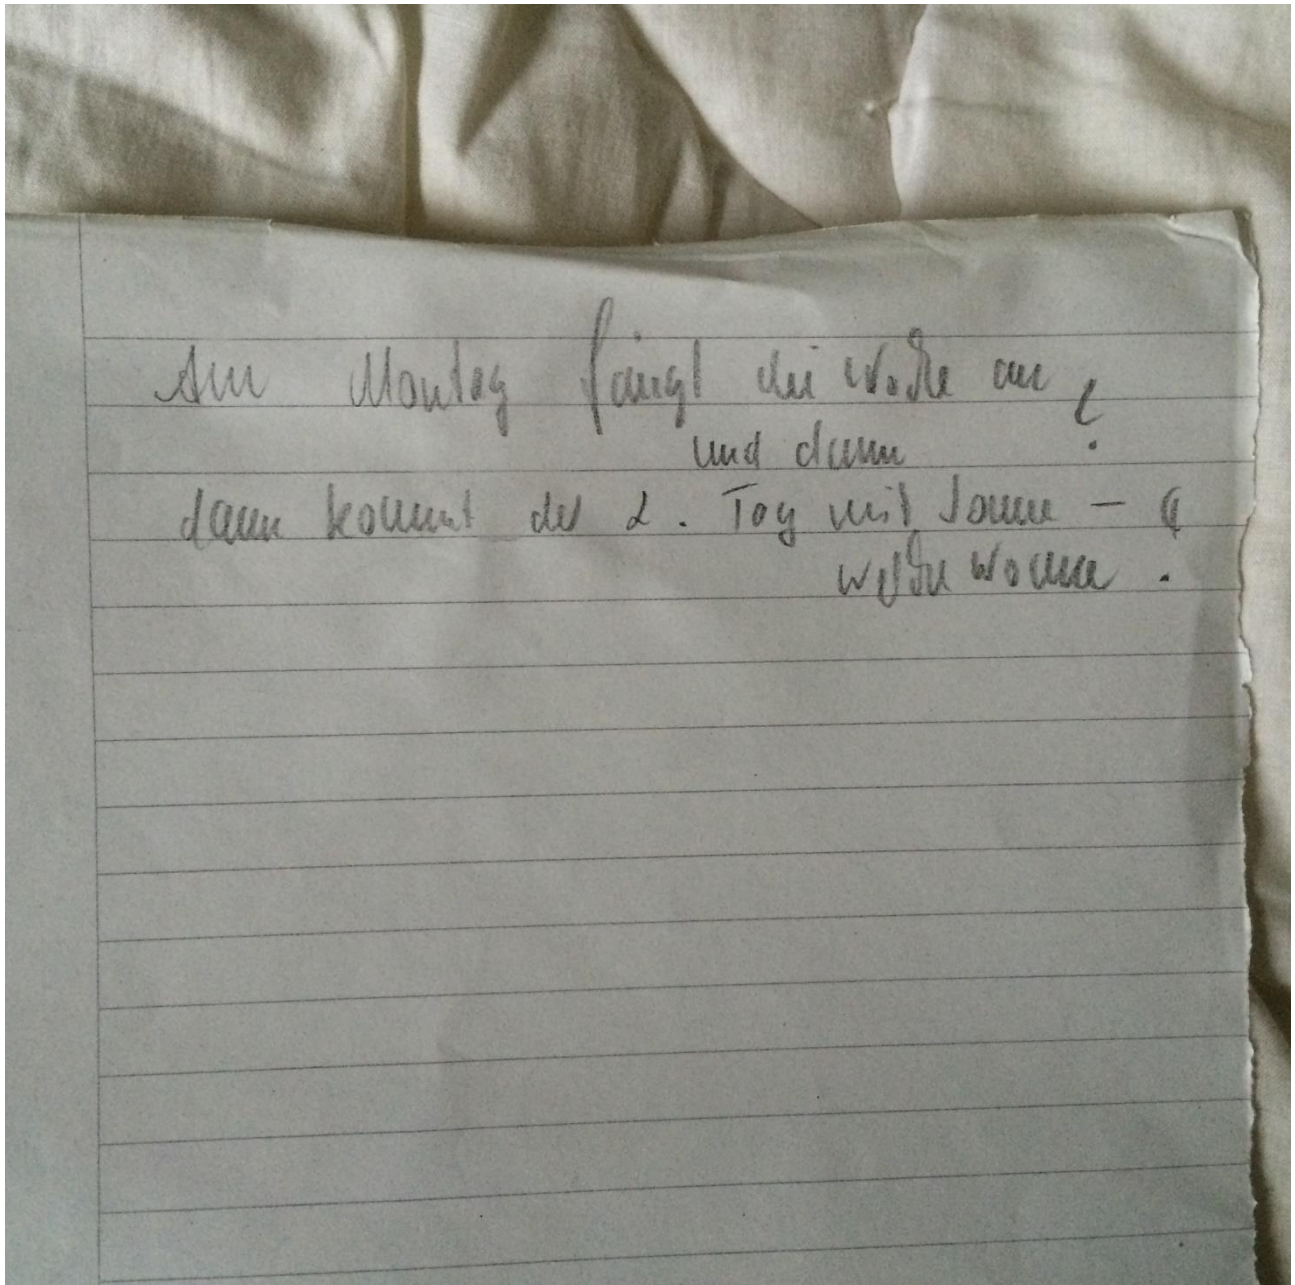 Am Montag fängt die Woche an
und dann ?
dann kommt der 2. Tag mit Sonne –
welche Wonne .